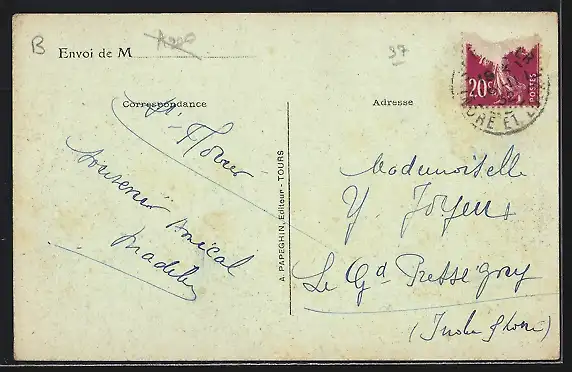 B
Envoi de M
37
20c
POSTES
INDRE ET L
Correspondance
Adresse
St-Flover
Souvenir Amical
Madele
A. PAPEGHIN, Editeur - TOURS
Mademoiselle
Y Joyeux
Le Gd Pressigny
(Indre & Loire)